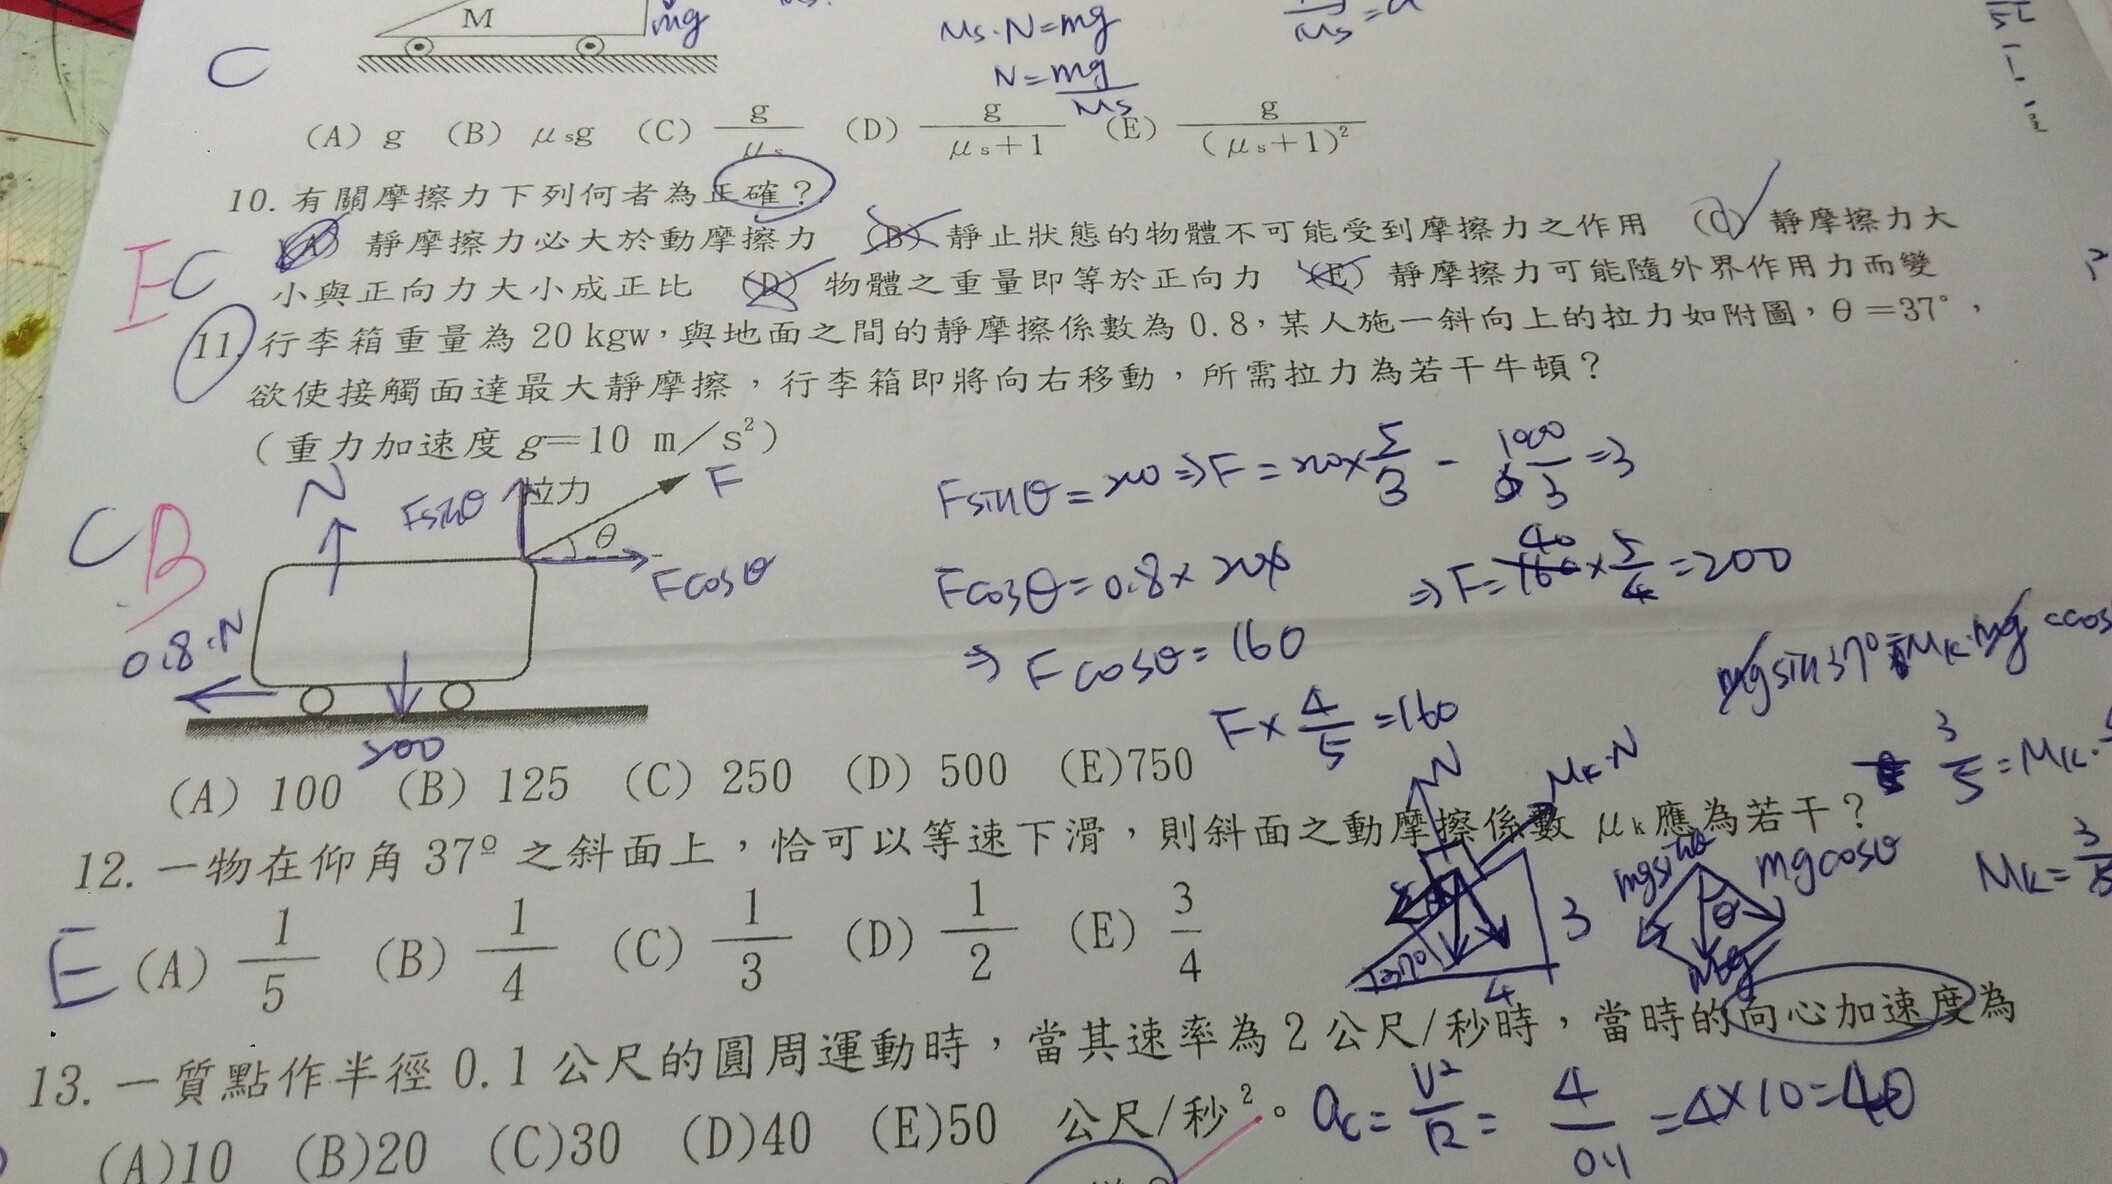 M
mg
Ms·N=mg
N=mg/Ms
C
(A) g (B) μsg (C) g/μs (D) g/μs+1 (E) g/(μs+1)²
10. 有關摩擦力下列何者為正確?
(A) 靜摩擦力必大於動摩擦力 (B) 靜止狀態的物體不可能受到摩擦力之作用 (C) 靜摩擦力大
E C
小與正向力大小成正比 (D) 物體之重量即等於正向力 (E) 靜摩擦力可能隨外界作用力而變
11. 行李箱重量為 20 kgw,與地面之間的靜摩擦係數為 0.8,某人施一斜向上的拉力如附圖,θ=37°,
欲使接觸面達最大靜摩擦,行李箱即將向右移動,所需拉力為若干牛頓?
(重力加速度 g=10 m/s²)
N
Fsinθ
拉力
F
θ
Fcosθ
C B
0.8·N
200
Fsinθ=200⇒F=200×5/3=1000/3=3
Fcosθ=0.8×200
⇒F=160×5/4=200
40
⇒Fcosθ=160
F×4/5=160
(A) 100 (B) 125 (C) 250 (D) 500 (E)750
12. 一物在仰角 37º 之斜面上,恰可以等速下滑,則斜面之動摩擦係數 μk應為若干?
E
(A) 1/5 (B) 1/4 (C) 1/3 (D) 1/2 (E) 3/4
N
Mk·N
37°
3
4
mgsinθ
mgcosθ
θ
mg
mgsin37°=Mk·mg
3/5=Mk·
Mk=
13. 一質點作半徑 0.1 公尺的圓周運動時,當其速率為 2 公尺/秒時,當時的向心加速度為
(A)10 (B)20 (C)30 (D)40 (E)50 公尺/秒²。
ac=V²/R=4/0.1=4×10=40